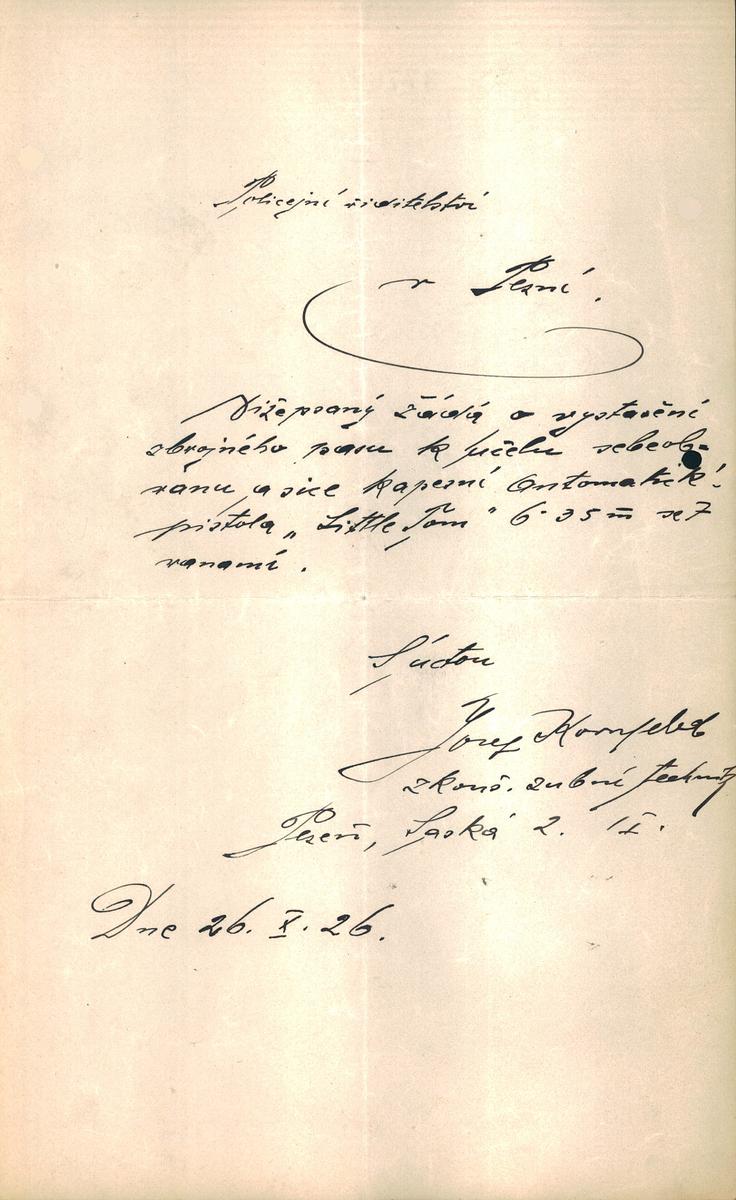 Policejní ředitelství
v Plzni.
Nížepsaný žádá o vystavění
zbrojného pasu k účelu sebeob-
ranu, a sice kapesní Automatick.
pistola „Little Tom" 6·35 m̅ se 7
ranami.
S úctou
Josef Kornfeld
zkouš. zubní technik
Plzeň, Saská 2. II.
Dne 26. X. 26.